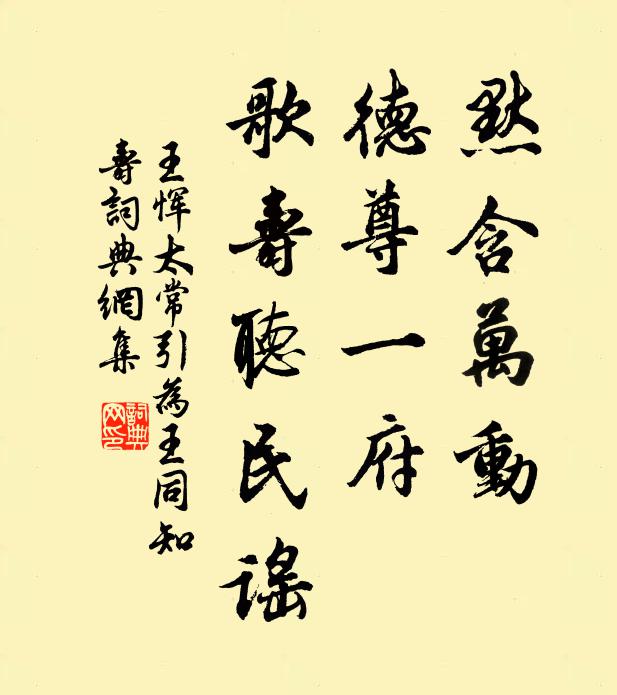 默含萬動
德尊一府
歌壽聽民謠
王惲太常引為王同知
壽詞典網集
詞典網印